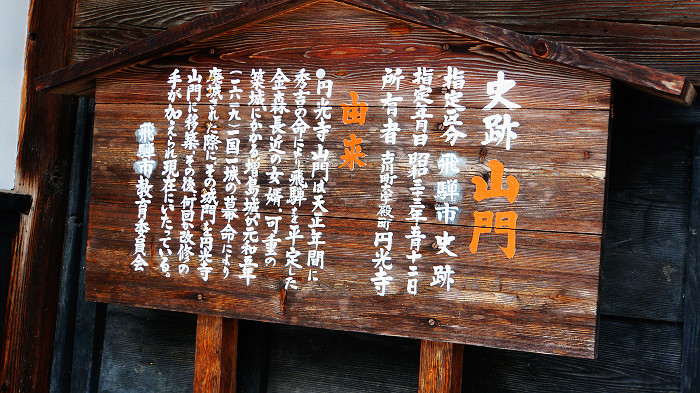 史跡 山門
指定区分 飛騨市史跡
指定年月日 昭和三十三年五月十二日
所有者 古川町殿町 円光寺
由来
●円光寺山門は天正年間に
秀吉の命により飛騨を平定した
金森長近の女婿 可重の
築城にかかる増島城が元和五年
(一六一九)一国一城の幕命により
廃城された際にその城門を円光寺
山門に移築 その後、何回か改修の
手が加えられ現在にいたっている。
飛騨市教育委員会